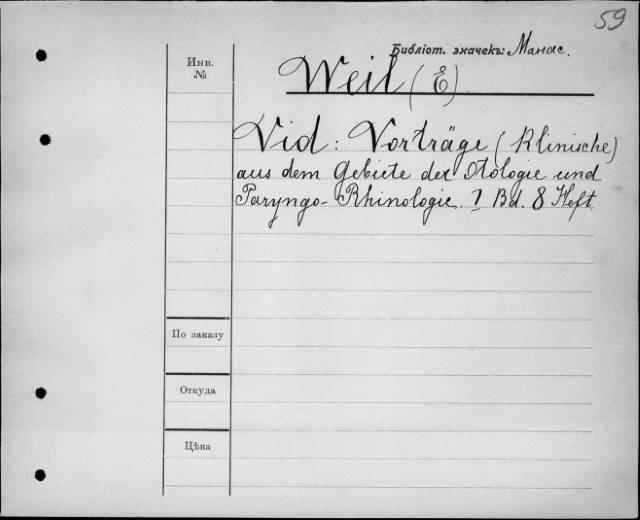 59
Библіот. значекъ: Манас.
Инв.
№
Weil (E)
Vid: Vorträge (Klinische)
aus dem Gebiete der Otologie und
Paryngo-Rhinologie. 1 Bd. 8 Heft.
По заказу
Откуда
Цѣна